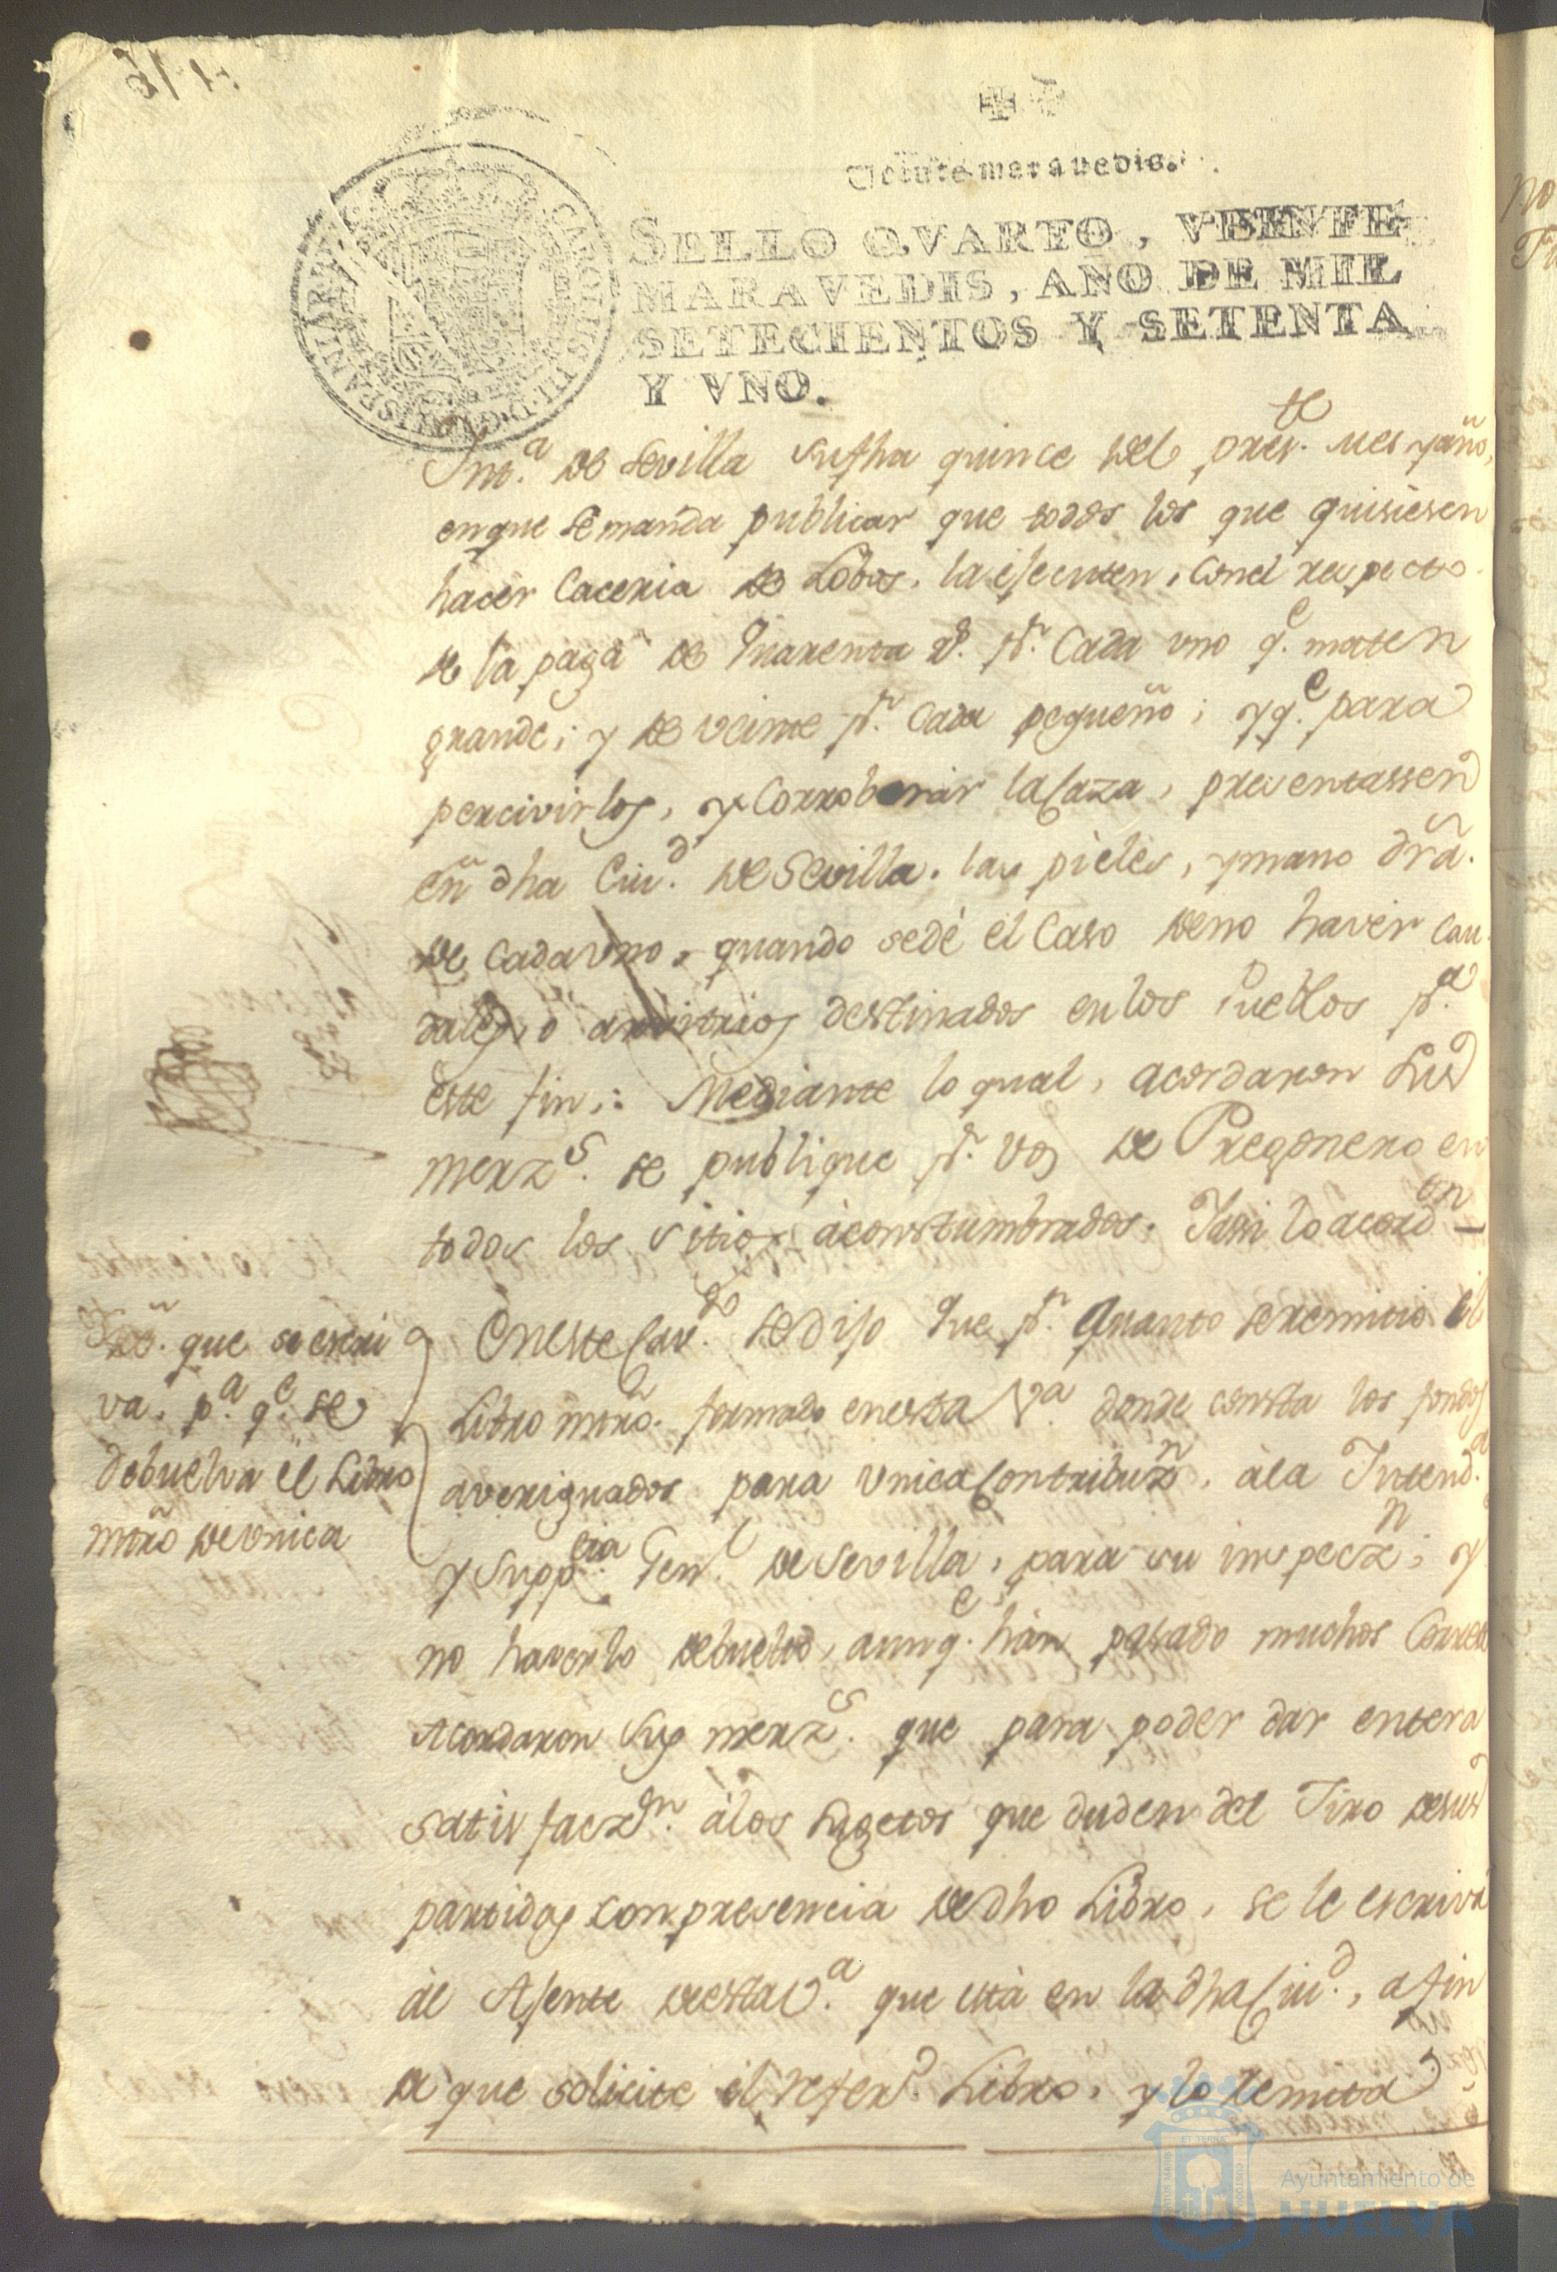 Veinte maravedis.
SELLO QVARTO, VEINTE
MARAVEDIS, AÑO DE MIL
SETECIENTOS Y SETENTA
Y VNO.
CAROLUS III D G HISPANIAR
Int.ª de Sevilla su fha quince del pres.te mes y año,
en que se manda publicar que todos los que quisiesen
hacer Caceria de Lobos, la ejecuten, con el respecto
de la paga de Quarenta r.s p.r Cada uno q.e maten
grande; y de veinte p.r cada pequeño; y q.e para
percivirlos, y Corroborar la Caza, presentassen
en dha Ciu.d de Sevilla, las pieles, y mano dra.
de cada uno, quando se dé el Caso de no haver cau
dales, o arvitrios destinados en los Pueblos p.a
este fin; Mediante lo qual, acordaron Sus
merz.s se publique p.r Voz de Pregonero en
todos los sitios acostumbrados. Y asi lo acord.on
que se escri
va, p.a q.e se
debuelva el Libro
mro de unica
En este Cav.do se dijo Que p.r Quanto se remitio el
Libro mro. formado en esta V.a donde consta los fondos
averiguados para Unica Contribuz.n, a la Intend.a
y Supp.cia Gen.l de Sevilla, para su inspecz.n, y
no haverlo debuelto, aunq.e han pasado muchos Correos
Acordaron Sus merz.s que para poder dar entera
satisfacz.on a los sugetos que duden del Tiro de sus
partidas con presencia de dho Libro, se le escriva
al Ajente de esta V.a que está en la dha Ciu.d, a fin
de que solicite el refer.do Libro, y lo remita
Ayuntamiento de
HUELVA